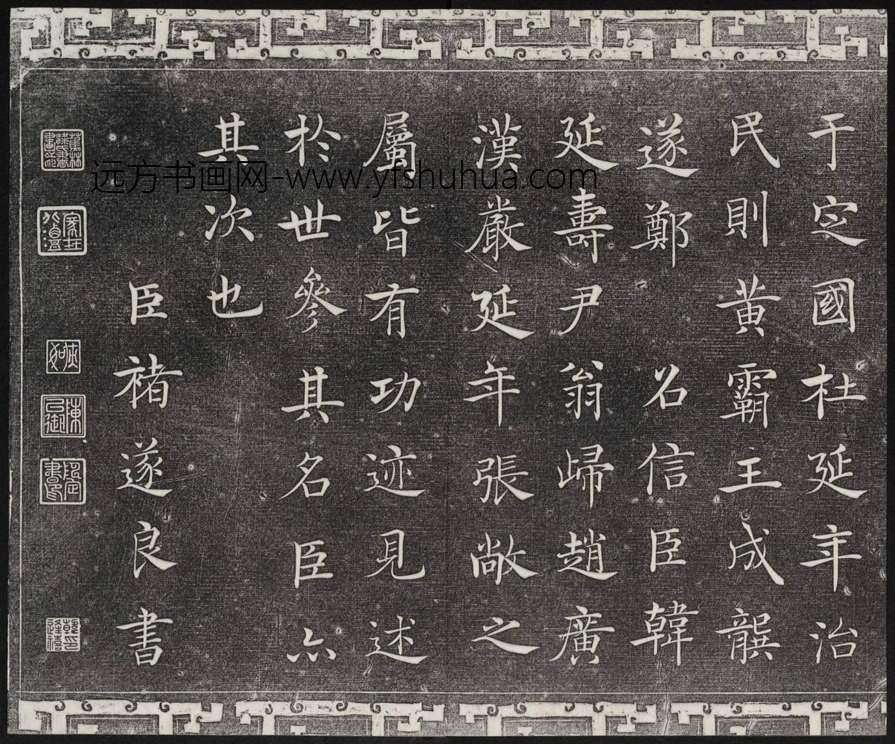 于定國杜延年治
民則黃霸王成龔
遂鄭 名信臣韓
延壽尹翁歸趙廣
漢嚴延年張敞之
屬皆有功迹見述
於世參其名臣亦
其次也
臣褚遂良書
远方书画网-www.yfshuhua.com